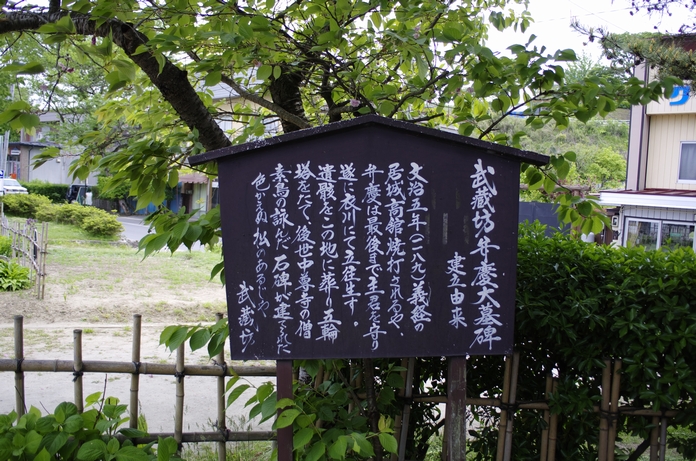 武蔵坊弁慶大墓碑
建立由来
文治五年(一一八九)義経の
居城高館焼打されるや、
弁慶は最後まで主君を守り
遂に衣川にて立往生す、
遺骸をこの地に葬り五輪
塔をたて、後世中尊寺の僧
素鳥の詠んだ石碑が建てられた
色かえぬ松のあるじや
武蔵坊